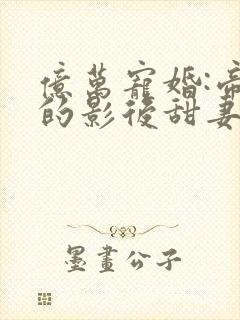 億萬寵婚:帝
的影後甜妻
墨畫公子